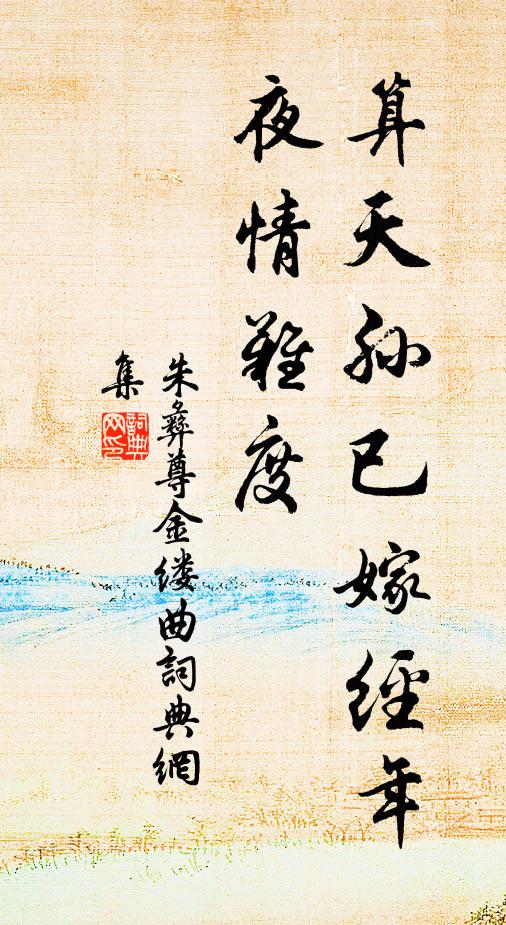 算天孙已嫁經年
夜情難度
朱彝尊金缕曲詞典網
集
詞典
网印